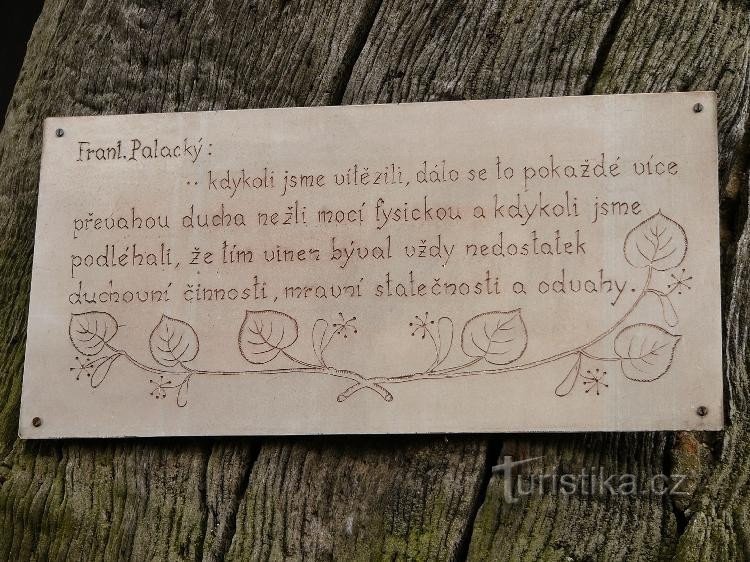 Frant. Palacký:
.. kdykoli jsme vítězili, dálo se to pokaždé více
převahou ducha nežli mocí fysickou a kdykoli jsme
podléhali, že tím vinen býval vždy nedostatek
duchovní činnosti, mravní statečnosti a odvahy.
Turistika.cz